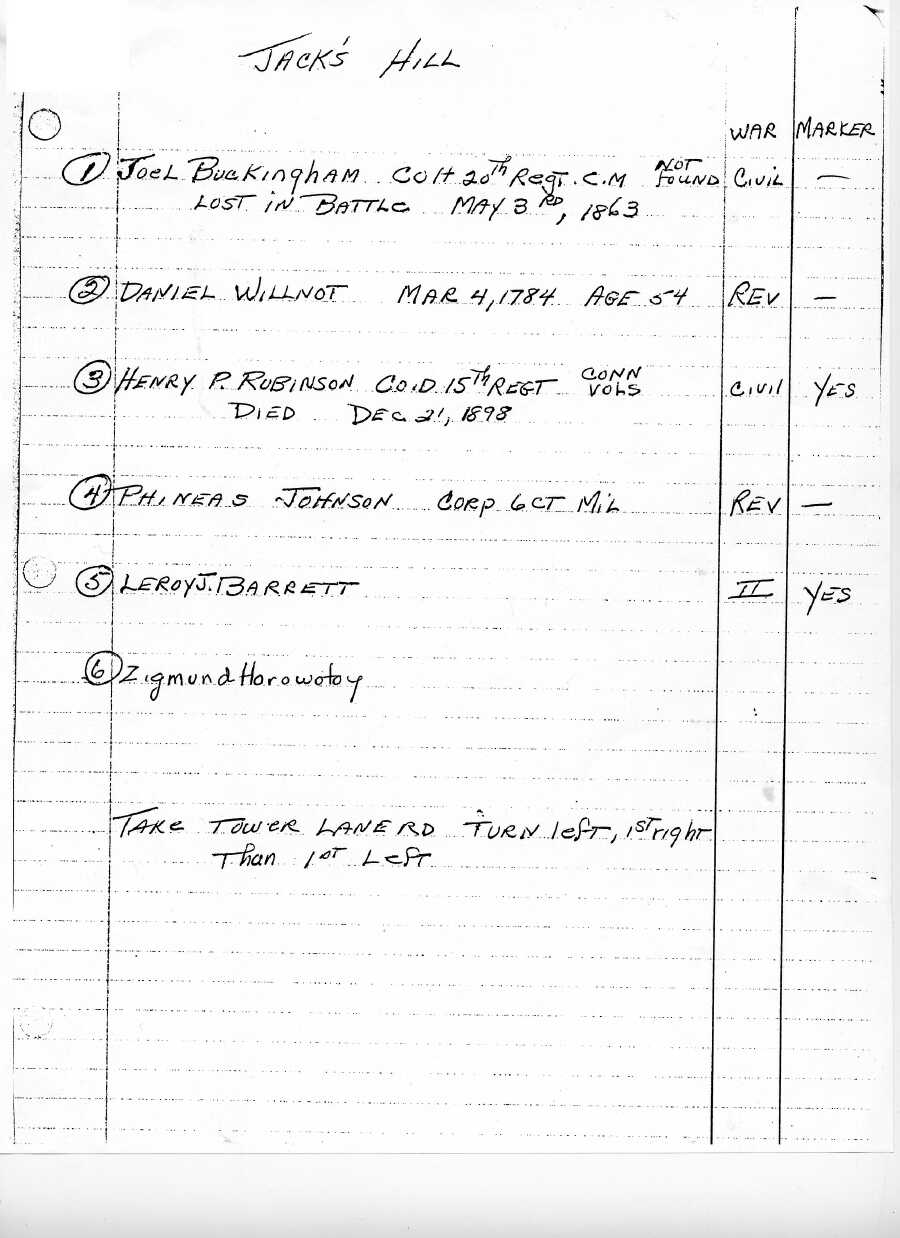 JACK'S HILL
WAR MARKER
1 JOEL BUCKINGHAM CO H 20TH REGT. C.M NOT FOUND CIVIL —
LOST IN BATTLE MAY 3RD, 1863
2 DANIEL WILLNOT MAR 4, 1784 AGE 54 REV —
3 HENRY P. ROBINSON CO.D 15TH REGT CONN VOLS CIVIL YES
DIED DEC 21, 1898
4 PHINEAS JOHNSON CORP 6 CT MIL REV —
5 LEROY J. BARRETT II YES
6 Zigmund Horowotoy
TAKE TOWER LANE RD TURN left, 1ST right
Than 1ST Left